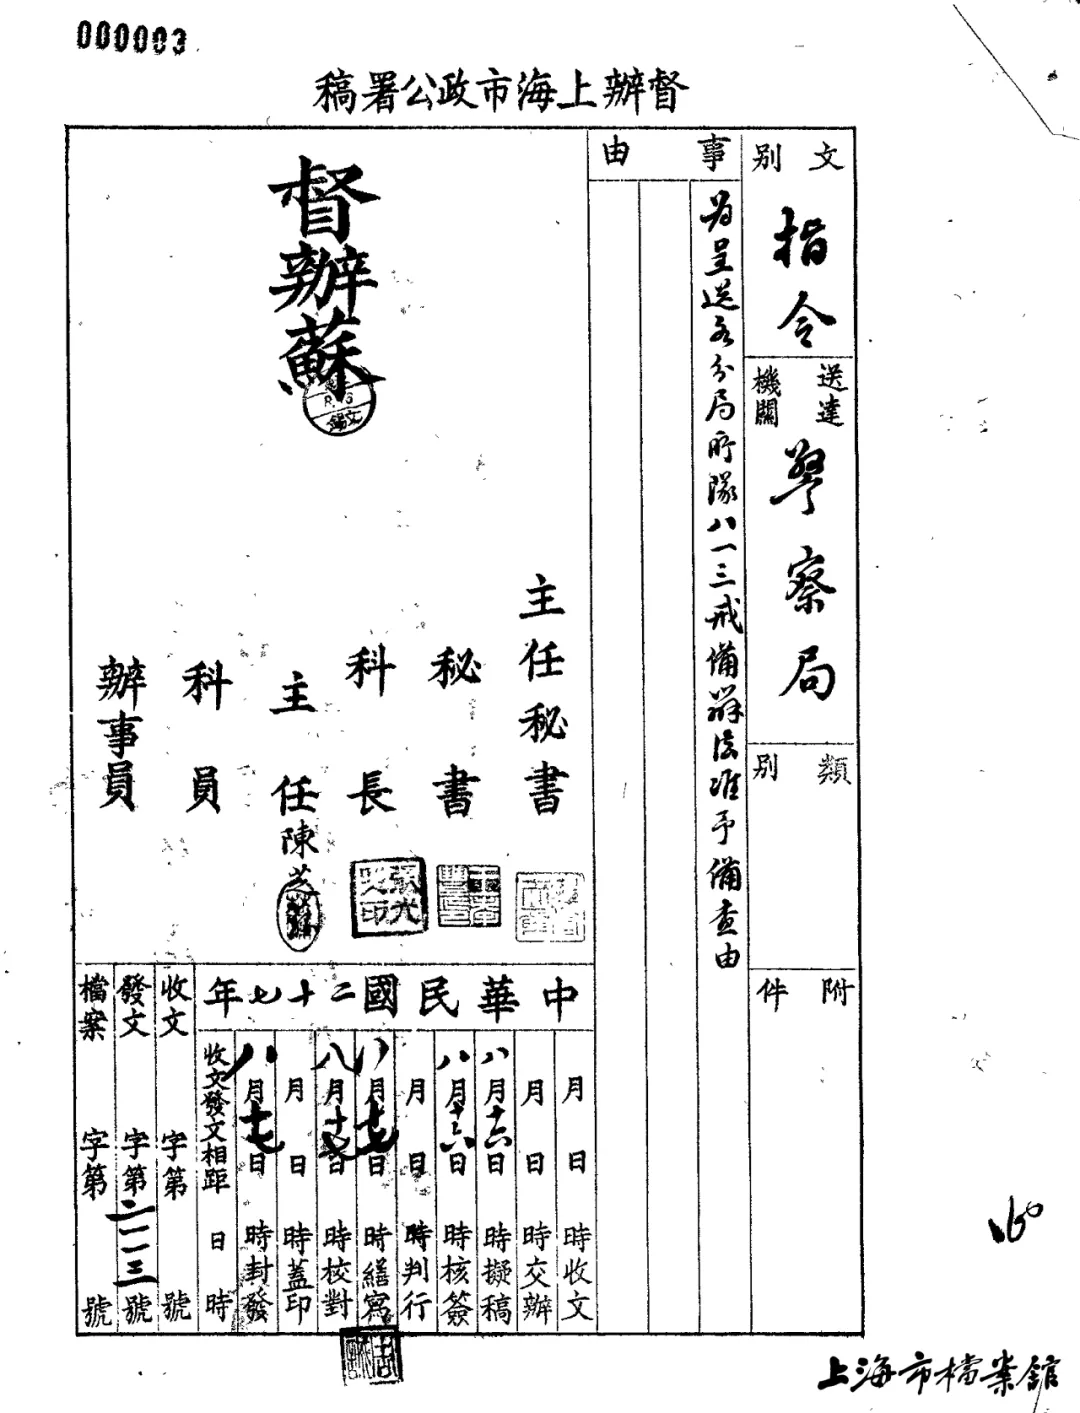 000003
督辦上海市政公署稿
文別 指令
送達機關 警察局
類別
附件
事由
為呈送各分局所隊八一三戒備辦法准予備查由
督辦蘇
錫文
主任秘書
秘書
科長
主任 陳芝
科員
辦事員
中華民國二十七年
月 日 時收文
月 日 時交辦
八月十六日 時擬稿
八月十六日 時核簽
月 日 時判行
八月十七日 時繕寫
八月十七日 時校對
月 日 時蓋印
八月十七日 時封發
收文發文相距 日 時
收文 字第 號
發文 字第二一一三號
檔案 字第 號
160
上海市檔案館